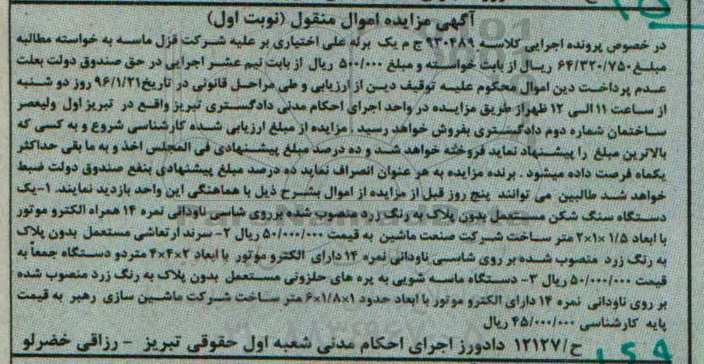 آگهی مزایده اموال منقول (نوبت اول)
در خصوص پرونده اجرایی کلاسه ۹۳۰۴۸۹ ج م یک برله علی اختیاری بر علیه شرکت قزل ماسه به خواسته مطالبه
مبلغ ۶۴/۳۲۰/۷۵۰ ریال از بابت خواسته و مبلغ ۵۰۰/۰۰۰ ریال از بابت نیم عشر اجرایی در حق صندوق دولت بعلت
عدم پرداخت دین اموال محکوم علیه توقیف دین از ارزیابی و طی مراحل قانونی در تاریخ ۹۶/۱/۲۱ روز دو شنبه
از ساعت ۱۱ الی ۱۲ ظهر از طریق مزایده در واحد اجرای احکام مدنی دادگستری تبریز واقع در تبریز اول ولیعصر
ساختمان شماره دوم دادگستری بفروش خواهد رسید . مزایده از مبلغ ارزیابی شده کارشناسی شروع و به کسی که
بالاترین مبلغ را پیشنهاد نماید فروخته خواهد شد و ده درصد مبلغ پیشنهادی فی المجلس اخذ و به ما بقی حداکثر
یکماه فرصت داده میشود . برنده مزایده به هر عنوان انصراف نماید ده درصد مبلغ پیشنهادی بنفع صندوق دولت ضبط
خواهد شد طالبین می توانند پنج روز قبل از مزایده از اموال بشرح ذیل با هماهنگی این واحد بازدید نمایند. ۱-یک
دستگاه سنگ شکن مستعمل بدون پلاک به رنگ زرد منصوب شده بر روی شاسی ناودانی نمره ۱۴ همراه الکترو موتور
با ابعاد ۱/۵×۱×۲ متر ساخت شرکت صنعت ماشین به قیمت ۵۰/۰۰۰/۰۰۰ ریال ۲- سرند ارتعاشی مستعمل بدون پلاک
به رنگ زرد منصوب شده بر روی شاسی ناودانی نمره ۱۴ دارای الکترو موتور با ابعاد ۲×۴×۴ متر دو دستگاه جمعاً به
قیمت ۵۰/۰۰۰/۰۰۰ ریال ۳- دستگاه ماسه شویی به پره های حلزونی مستعمل بدون پلاک به رنگ زرد منصوب شده
بر روی ناودانی نمره ۱۴ دارای الکترو موتور با ابعاد حدود ۱/۸×۱×۶ متر ساخت شرکت ماشین سازی رهبر به قیمت
پایه کارشناسی ۴۵/۰۰۰/۰۰۰ ریال
ح/۱۲۱۲۷ دادورز اجرای احکام مدنی شعبه اول حقوقی تبریز - رزاقی خضرلو